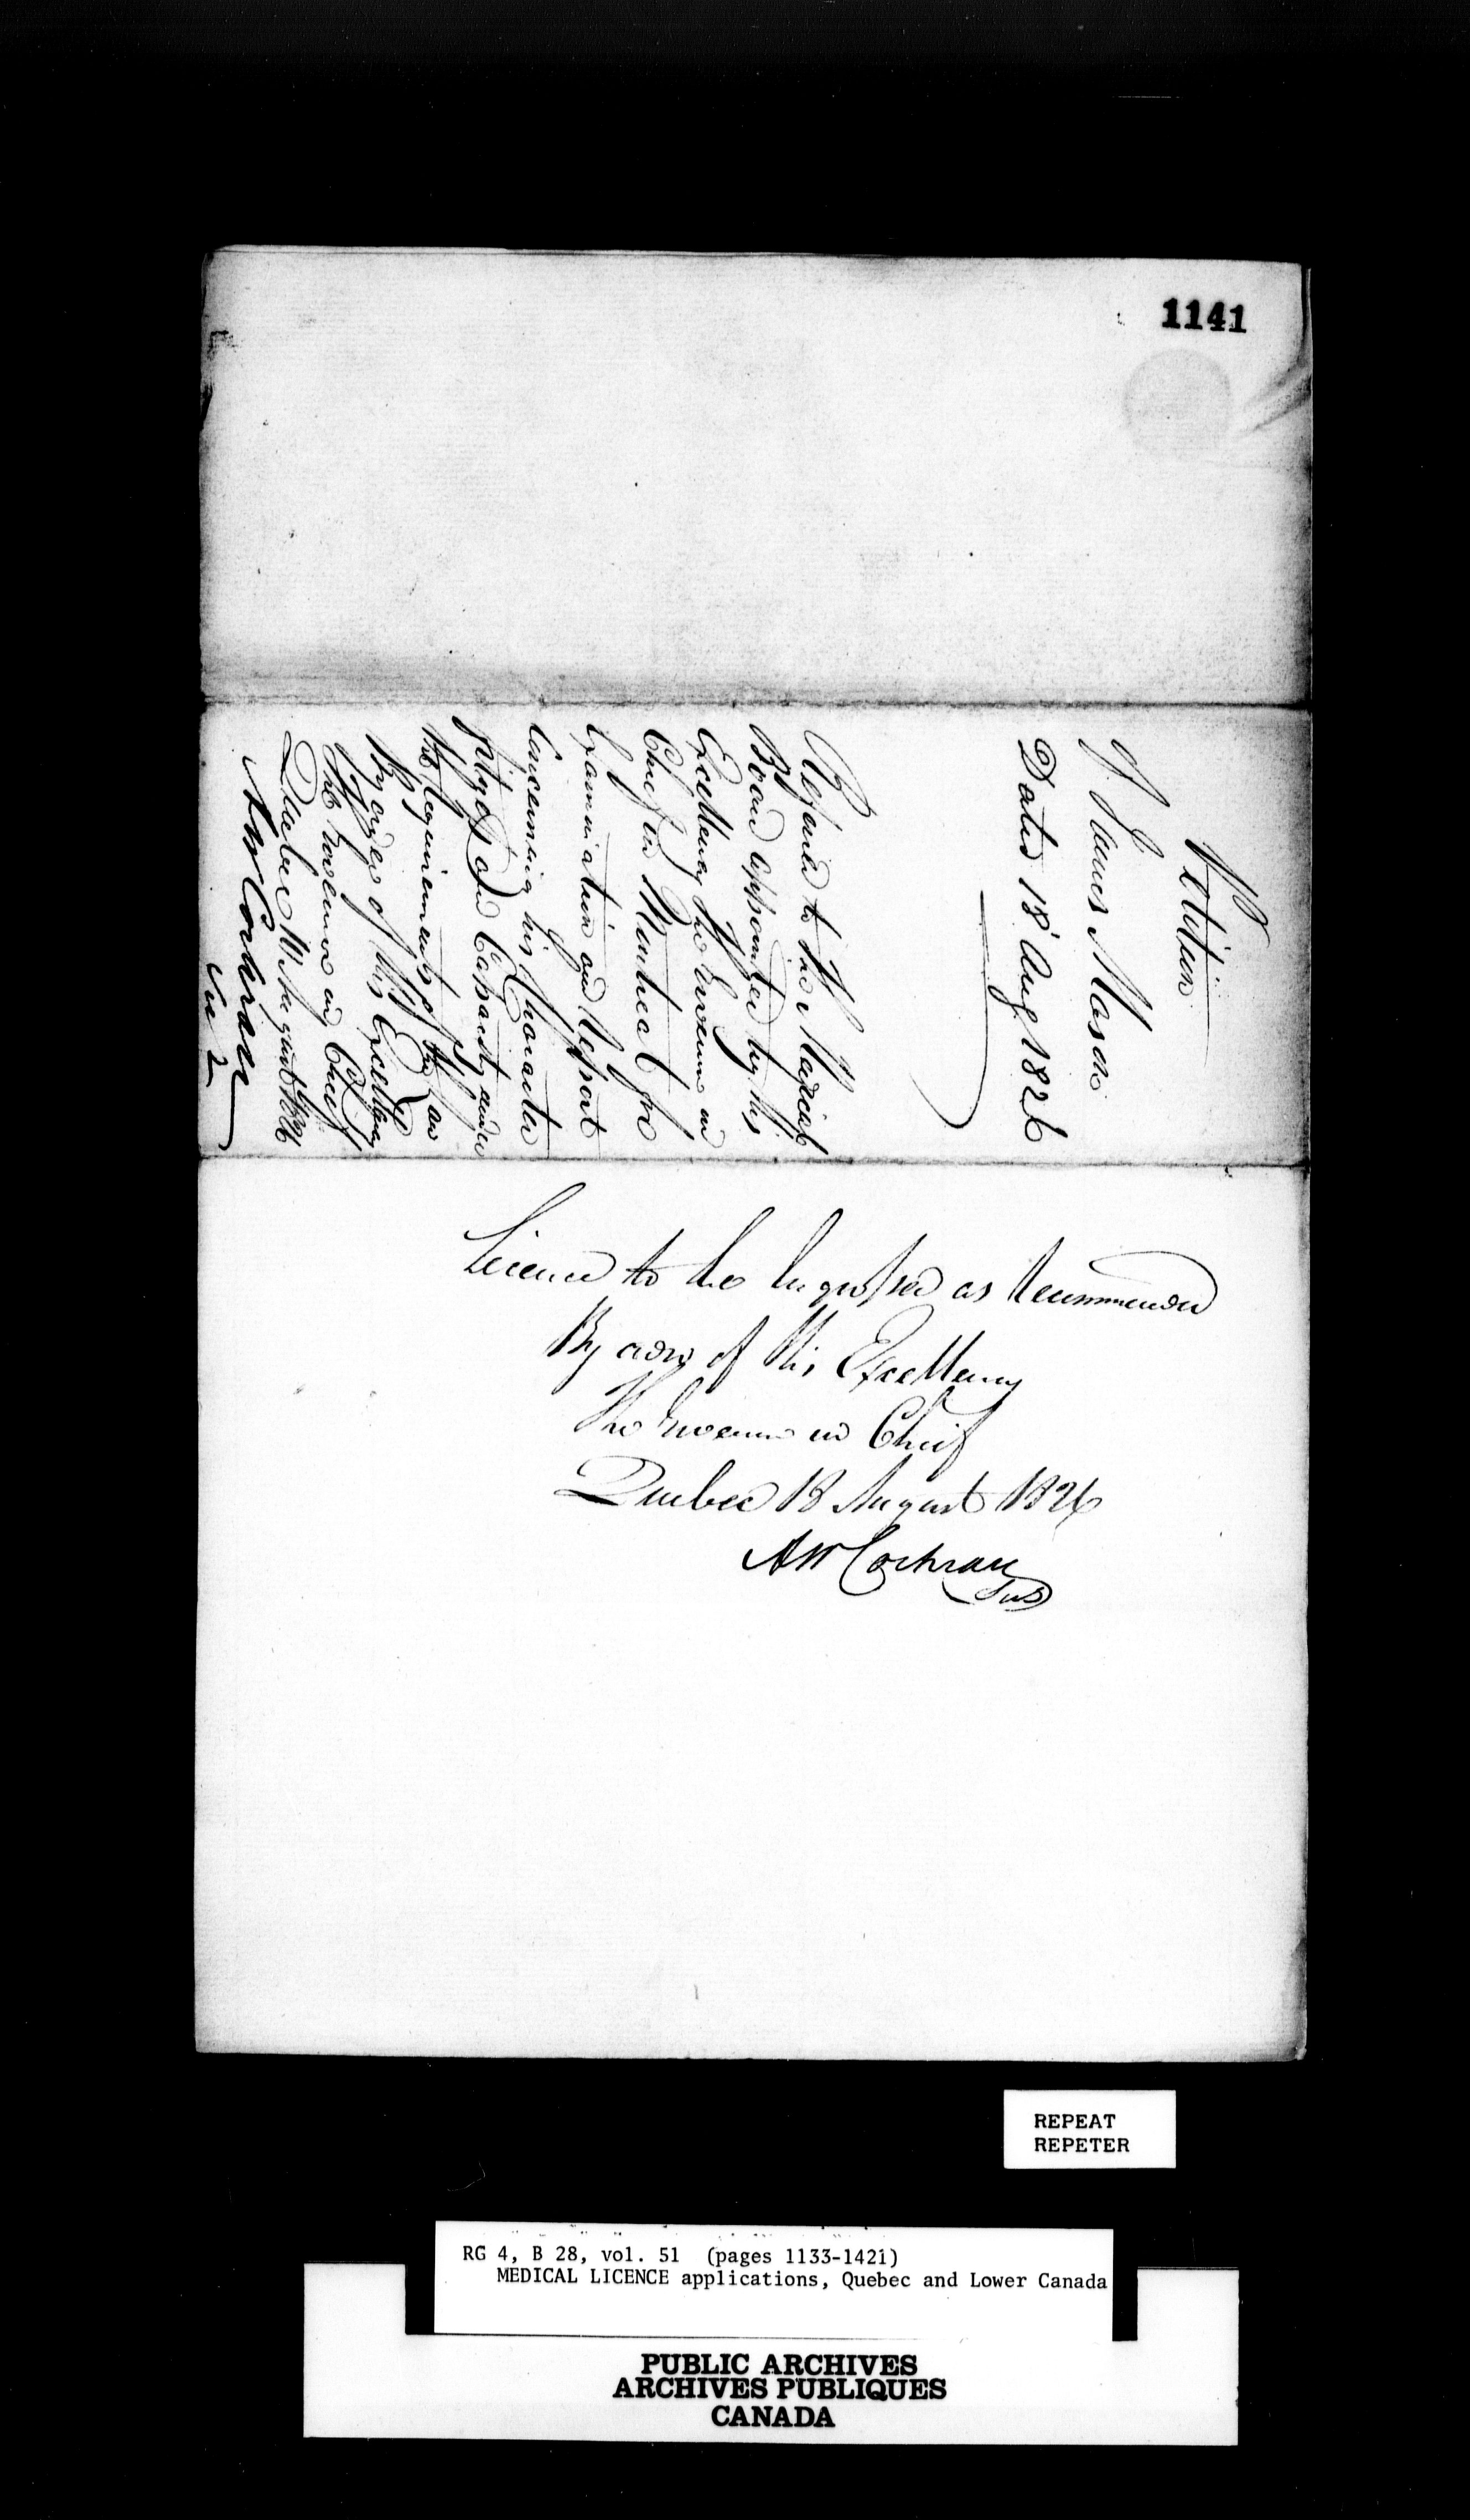 1141
Petition
of James Mason
Dated 18 Aug 1826
Referred to the Medical
Board appointed by his
Excellency the Governor in
Chief in Montreal for
Examination and Report
Concerning his Character
fitness and Capacity under
the requirements of the Law
By order of His Excellency
The Governor in Chief
Quebec 18 August 1826
AW Cochran
Secy
Licence to be Engrossed as Recommended
By order of His Excellency
The Governor in Chief
Quebec 18 August 1826
AW Cochran
REPEAT
REPETER
RG 4, B 28, vol. 51 (pages 1133-1421)
MEDICAL LICENCE applications, Quebec and Lower Canada
PUBLIC ARCHIVES
ARCHIVES PUBLIQUES
CANADA